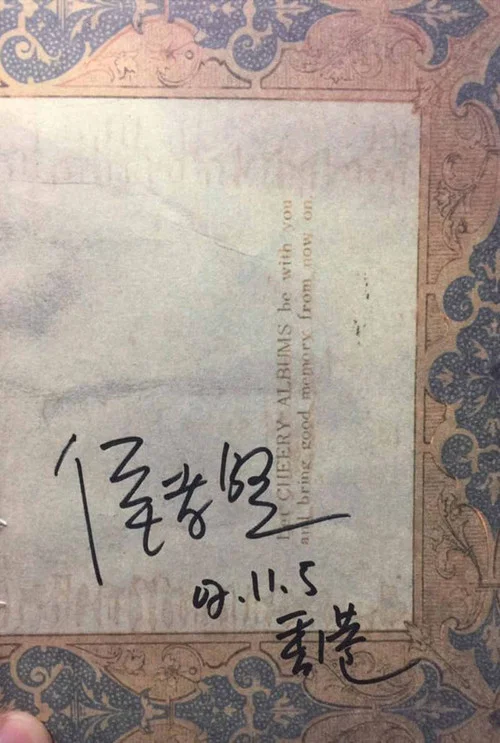 Let CHEERY ALBUMS be with you
and bring good memory from now on.
侯孝賢
07.11.5
香港